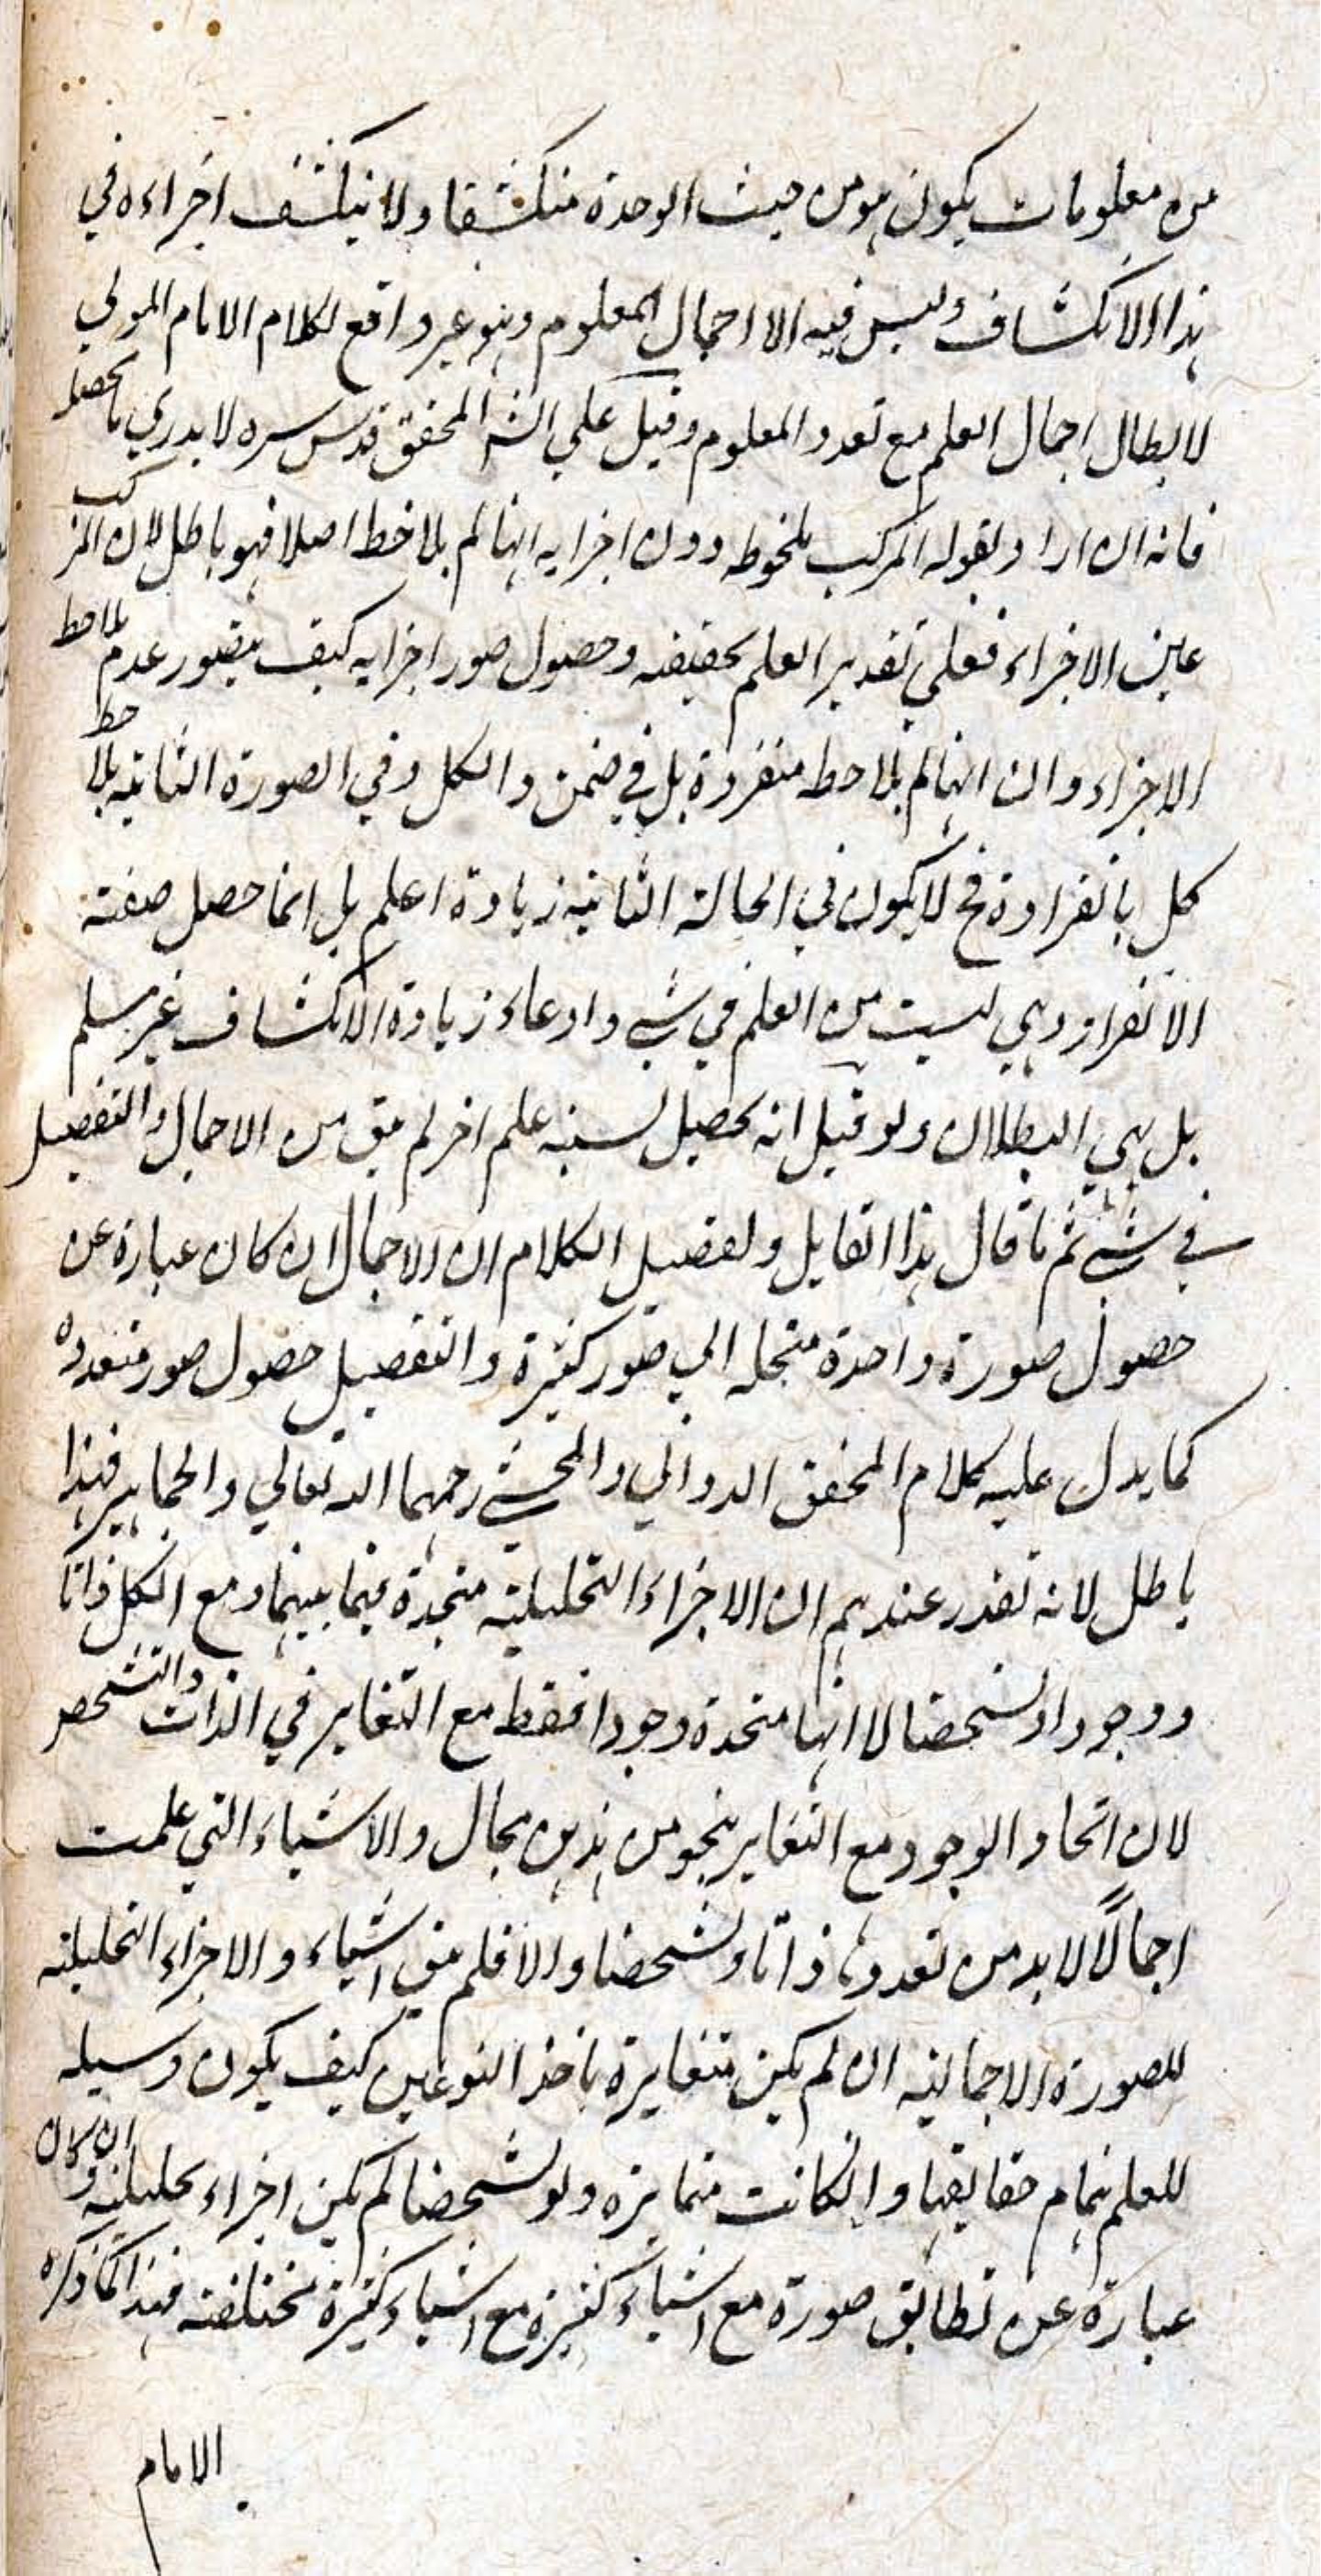 من معلومات يكون هو من حيث الوحدة منكشفا ولا ينكشف اجزاءه في
هذا الانكشاف وليس فيه الا اجمال المعلوم وهو غير واقع لكلام الامام المولي
لابطال اجمال العلم مع تعدد المعلوم وقيل علي الش المحقق قدس سره لا يدري ما محصله
فانه ان اراد بقوله المركب ملحوظ دون اجزايه انها لم يلاحظ اصلا فهو باطل لان المركب
عين الاجزاء فعلي تقدير العلم بحقيقته وحصول صور اجزايه كيف يتصور عدم ملاحظ
الاجزاء وان انها لم يلاحظ منفردة بل في ضمن والكل وفي الصورة الثانية يلاحظ
كل بانفراده فح لا يكون في الحالة الثانية زيادة اعلم بل انما حصل صفته
الانفراد وهي ليست من العلم في شي وادعاء زيادة الانكشاف غير مسلم
بل بهي البطلان ولو قيل انه يحصيل لسنبه علم اخر لم يبق من الاجمال والتفصيل
في شي ثم ما قال هذا القايل وتفصيل الكلام ان الاجمال ان كان عبارة عن
حصول صورة واحدة منحله الي صور كثيرة والتفصيل حصول صور متعدده
كما يدل عليه كلام المحقق الدواني والمحشي رحمهما الله تعالي والجماهير فهذا
باطل لانه تقرر عندهم ان الاجزاء التحليلية متحدة فيما بينهما ومع الكل ذاتا
ووجودا وتشخصا لا انها متحدة وجودا فقط مع التغاير في الذات والتشخص
لان اتحاد الوجود مع التغاير بنحو من هذين محال والاشياء التي علمت
اجمالاً لابد من تعددها ذاتا وتشخصا والا فلم يبق اشياء والاجزاء التحليلية
للصورة الاجمالية ان لم يكن متغايرة باخذ النوعين كيف يكون وسيله
للعلم بتمام حقايقها وان كانت متمايزة ولو تشخصا لم يكن اجزاء تحليلية وان كان
عبارة عن تطابق صورة مع اشياء كثيرة مع اشياء كثيرة مختلفة فهذا كما ذكره
الامام